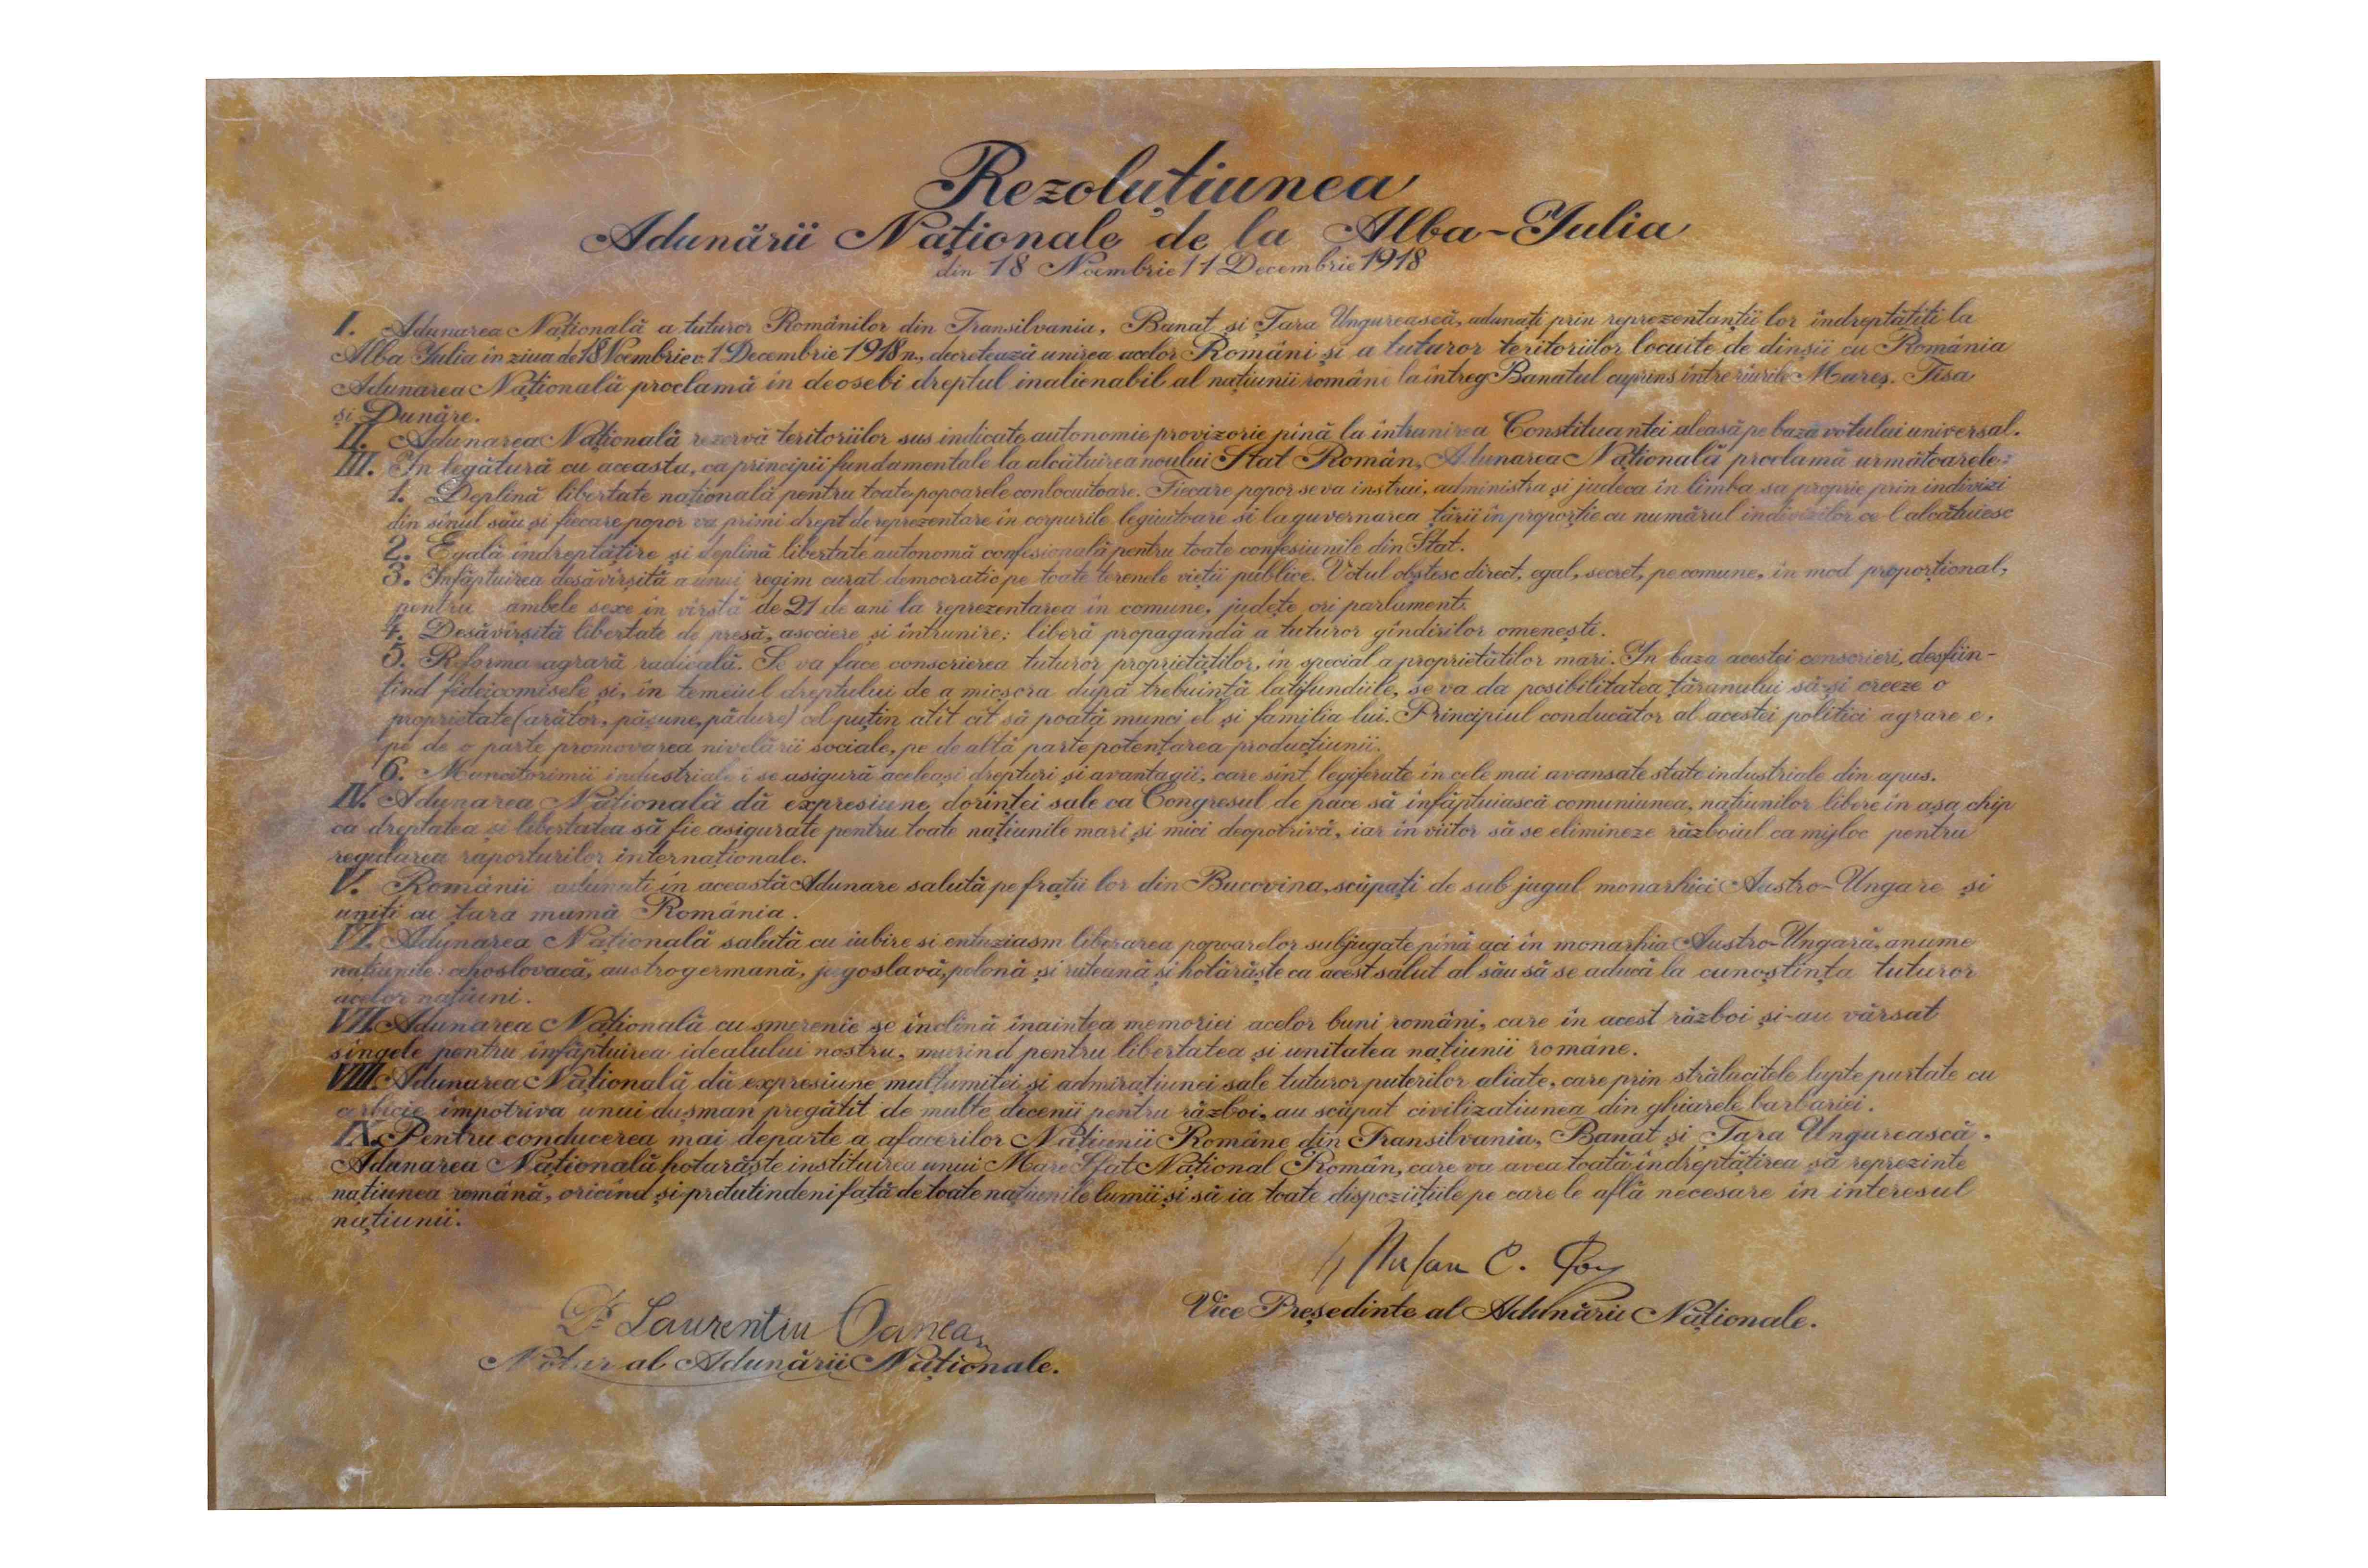 Rezoluțiunea
Adunării Naționale de la Alba-Iulia
din 18 Noembrie / 1 Decembrie 1918
I. Adunarea Națională a tuturor Românilor din Transilvania, Banat și Țara Ungurească, adunați prin reprezentanții lor îndreptățiți la
Alba Iulia în ziua de 18 Noembrie v. 1 Decembrie 1918 n., decretează unirea acelor Români și a tuturor teritoriilor locuite de dinșii cu România
Adunarea Națională proclamă în deosebi dreptul inalienabil al națiunii române la întreg Banatul cuprins între riurile Mureș, Tisa
și Dunăre.
II. Adunarea Națională rezervă teritoriilor sus indicate autonomie provizorie pînă la întrunirea Constituantei aleasă pe baza votului universal.
III. In legătură cu aceasta, ca principii fundamentale la alcătuirea noului Stat Român, Adunarea Națională proclamă următoarele:
1. Deplină libertate națională pentru toate popoarele conlocuitoare. Fiecare popor se va instrui, administra și judeca în limba sa proprie prin indivizi
din sînul său și fiecare popor va primi drept de reprezentare în corpurile legiuitoare și la guvernarea țării în proporție cu numărul indivizilor ce-l alcătuiesc
2. Egală îndreptățire și deplină libertate autonomă confesională pentru toate confesiunile din Stat.
3. Infăptuirea desăvîrșită a unui regim curat democratic pe toate terenele vieții publice. Votul obștesc direct, egal, secret, pe comune, în mod proporțional,
pentru ambele sexe în vîrstă de 21 de ani la reprezentarea în comune, județe ori parlament.
4. Desăvîrșită libertate de presă, asociere și întrunire: liberă propagandă a tuturor gîndirilor omenești.
5. Reforma agrară radicală. Se va face conscrierea tuturor proprietăților, în special a proprietăților mari. In baza acestei conscrieri, desfiin-
țînd fideicomisele și, în temeiul dreptului de a micșora după trebuință latifundiile, se va da posibilitatea țăranului să-și creeze o
proprietate (arător, pășune, pădure) cel puțin atît cît să poată munci el și familia lui. Principiul conducător al acestei politici agrare e,
pe de o parte promovarea nivelării sociale, pe de altă parte potențarea producțiunii.
6. Muncitorimii industriale i se asigură aceleași drepturi și avantagii, care sînt legiferate în cele mai avansate state industriale din apus.
IV. Adunarea Națională dă expresiune dorinței sale ca Congresul de pace să înfăptuiască comuniunea națiunilor libere în așa chip
ca dreptatea și libertatea să fie asigurate pentru toate națiunile mari și mici deopotrivă, iar în viitor să se elimineze războiul ca mijloc pentru
regularea raporturilor internaționale.
V. Românii adunați în această Adunare salută pe frații lor din Bucovina, scăpați de sub jugul monarhiei Austro-Ungare și
uniți cu țara mumă România.
VI. Adunarea Națională salută cu iubire si entuziasm liberarea popoarelor subjugate pînă aci în monarhia Austro-Ungară, anume
națiunile: cehoslovacă, austrogermană, jugoslavă, polonă și ruteană și hotărăște ca acest salut al său să se aducă la cunoștința tuturor
acelor națiuni.
VII. Adunarea Națională cu smerenie se înclină înaintea memoriei acelor buni români, care în acest război și-au vărsat
sîngele pentru înfăptuirea idealului nostru, murind pentru libertatea și unitatea națiunii române.
VIII. Adunarea Națională dă expresiune mulțumitei și admirațiunei sale tuturor puterilor aliate, care prin strălucitele lupte purtate cu
cerbicie împotriva unui dușman pregătit de multe decenii pentru război, au scăpat civilizațiunea din ghiarele barbariei.
IX. Pentru conducerea mai departe a afacerilor Națiunii Române din Transilvania, Banat și Țara Ungurească,
Adunarea Națională hotarăște instituirea unui Mare Sfat Național Român, care va avea toată îndreptățirea să reprezinte
națiunea română, oricînd și pretutindeni față de toate națiunile lumii și să ia toate dispozițiile pe care le află necesare în interesul
națiunii.
Ștefan C. Pop
Vice Președinte al Adunării Naționale.
Dr Laurentiu Oanea
Notar al Adunării Naționale.